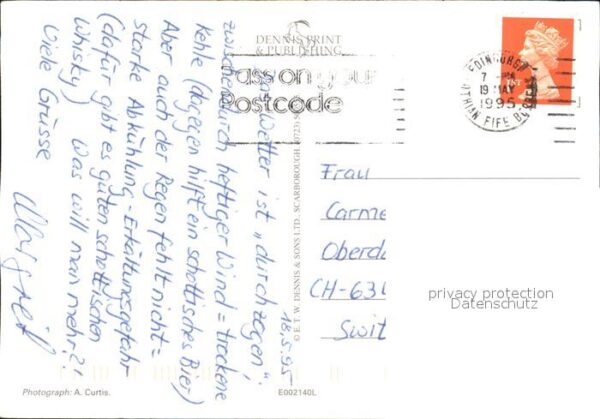 DENNIS PRINT
& PUBLISHING
Pass on your
Postcode
EDINBURGH
7 - PM
19 MAY
1995
LOTHIAN FIFE BORDERS
1ST
18.5.95
Wetter ist „durchzogen",
zwischendurch heftiger Wind = trockene
Kehle (dagegen hilft ein schottisches Bier)
Aber auch der Regen fehlt nicht =
starke Abkühlung - Erkältungsgefahr
(dafür gibt es guten schottischen
Whisky) Was will man mehr?!
Viele Grüsse
Margrit
© E. T. W. DENNIS & SONS LTD., SCARBOROUGH
Frau
Carme
Oberdo
CH-634
Swit
privacy protection
Datenschutz
Photograph: A. Curtis.
E002140L